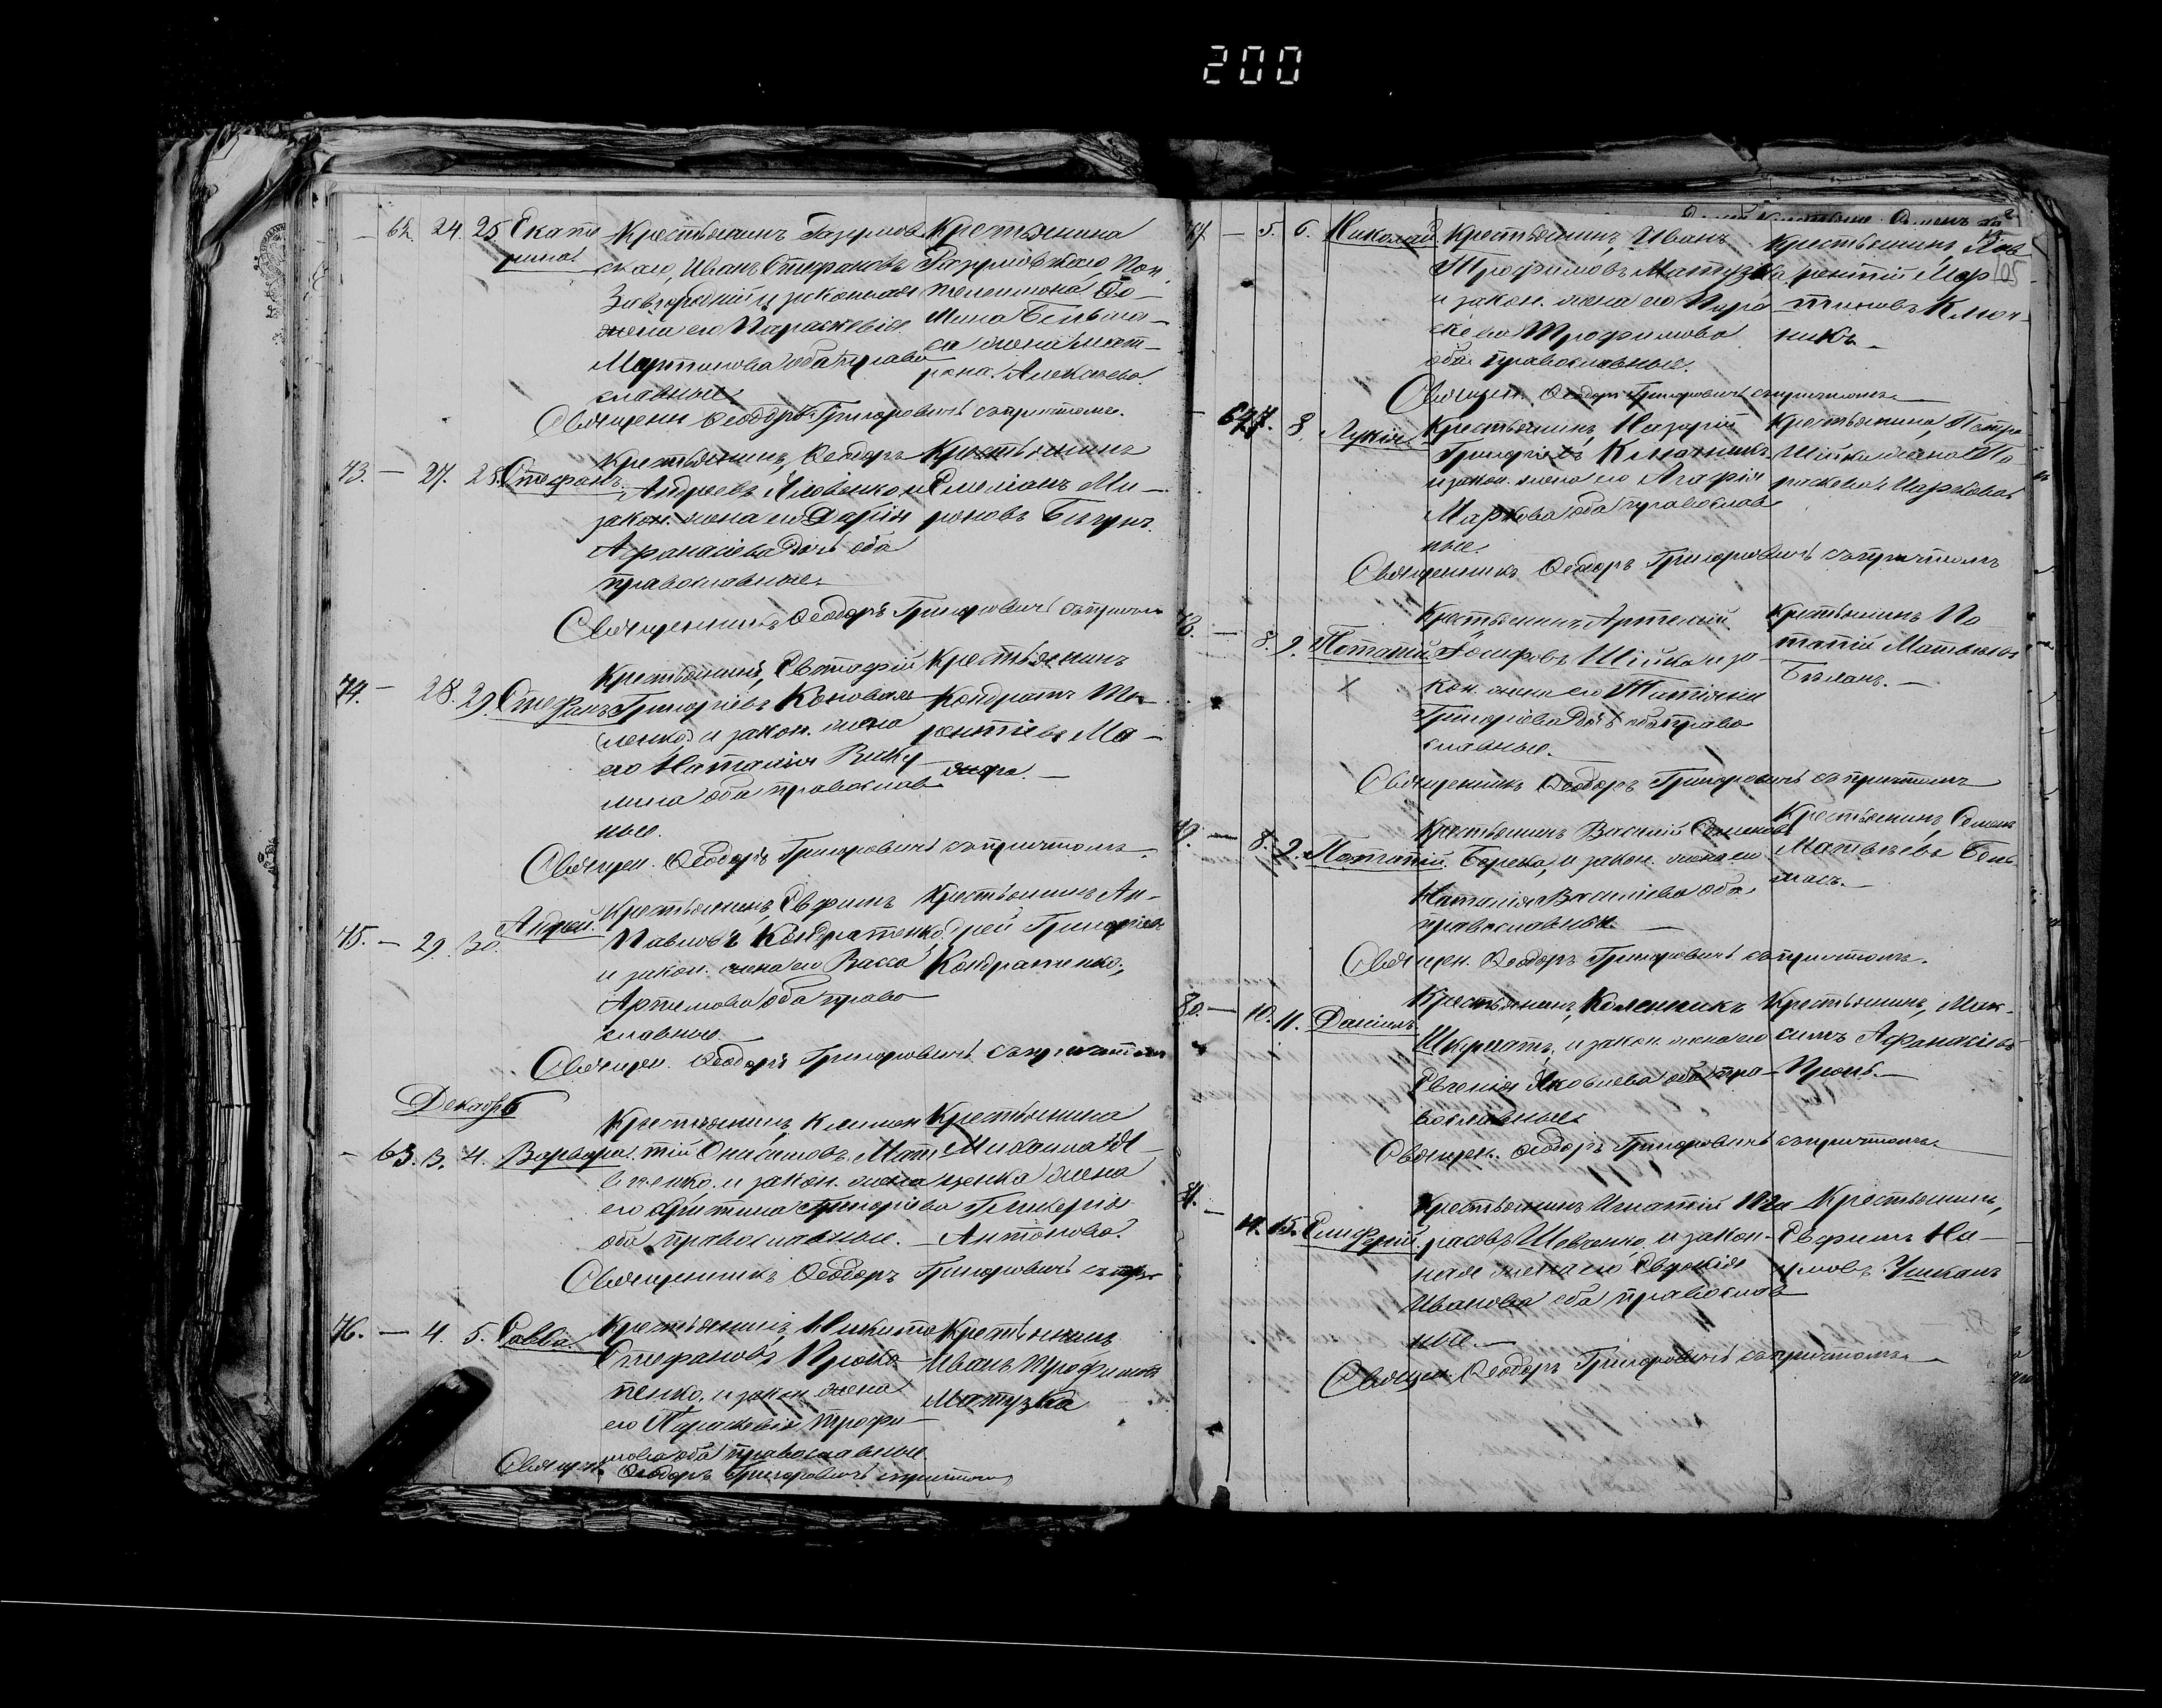 200
62. 24. 25. Екате
рина
Крестьянинъ Разумов
скаго, Иванъ Стефановъ
Завгородній и законная
жена его Параскевія
Мартинова оба право
славные.
Крестьянина
Разумовскаго, Пан
телеимона Ѳо
мина Бельма
са жена Мат
рона Алексѣева.
Священн. Ѳеодоръ Григоровичъ съ причтомъ.
73. — 27. 28. Стефанъ.
Крестьянинъ, Ѳеодоръ
Андреевъ Яловенко и
закон. жена его Дарія
Афанасіева дочь оба
православные.
Крестьянинъ
Емеліанъ Ми
роновъ Бѣгунъ.
Священникъ Ѳеодоръ Григоровичъ съ причтом
74. — 28. 29. Стефанъ
Крестьянинъ, Евстафій
Григоріевъ Коновал
и закон. жена
его Наталія Вику
лина оба православ
ные.
Крестьянинъ
Кондратъ Те
рентіевъ Ма
Священ. Ѳеодоръ Григоровичъ съ причтомъ.
75. — 29. 30. Андрей.
Крестьянинъ, Евфимъ
Павловъ Кондратенко
и закон. жена его Васса
Артемова оба право
славные.
Крестьянинъ Ан
дрей Григоріевъ
Кондратенко.
Священ. Ѳеодоръ Григоровичъ съ причтом
Декабрь
— 63. 3. 4. Варвара.
Крестьянинъ, Климен
тій Онисимовъ Мат
вѣенко, и закон. жена
его Христина Григоріева
оба православные.
Крестьянина
Михаила
жена
Гликерія
Антонова.
Священникъ Ѳеодоръ Григоровичъ съ при
76. — 4. 5. Савва.
Крестьянинъ, Никита
Стефановъ Проко
пенко, и закон. жена
его Параскевія Трофи
мова оба православные.
Крестьянинъ
Иванъ Трофимовъ
Матузка
Священ. Ѳеодоръ Григоровичъ с причтом
77. — 5. 6. Николай
Крестьянинъ, Иванъ
Трофимовъ Матузка
и закон. жена его Пара
скева Трофимова
оба православные.
Крестьянинъ, Лав
рентій Мар
тиновъ Ключ
никъ.
105
Священ. Ѳеодоръ Григоровичъ съ причтомъ.
— 64. 7. 8. Лукія.
Крестьянинъ, Назарій
Григоріевъ Ключникъ
и закон. жена его Агафія
Маркова оба православ
ные.
Крестьянина, Петра
Шійка жена Па
раскева Маркова
Священникъ Ѳеодоръ Григоровичъ съ причтомъ
78. — 8. 9. Потапій.
Крестьянинъ Артемій
Іосифовъ Шійка и за
кон. жена его Татіана
Григоріева дочь оба право
славные.
Крестьянинъ По
тапій Матвѣевъ
Бѣланъ.
Священникъ Ѳеодоръ Григоровичъ съ причтомъ
79. — 8. 9. Потапій.
Крестьянинъ Василій Семеновъ
и закон. жена его
Наталія Василіева оба
православные.
Крестьянинъ, Семенъ
Матвѣевъ Бель
масъ.
Священ. Ѳеодоръ Григоровичъ съ причтомъ.
80. — 10. 11. Даніилъ
Крестьянинъ, Каленникъ
и закон. жена его
Евгенія Яковлева оба пра
вославные
Крестьянинъ, Мак
симъ Афанасіевъ
Священ. Ѳеодоръ Григоровичъ съ причтомъ.
81. — 14. 15. Елифферій.
Крестьянинъ Игнатій
Шевченко, и закон
ная жена его Евдокія
Иванова оба православ
ные.
Крестьянинъ,
Евфимъ На
умовъ Чиканъ
Священ. Ѳеодоръ Григоровичъ съ причтомъ.